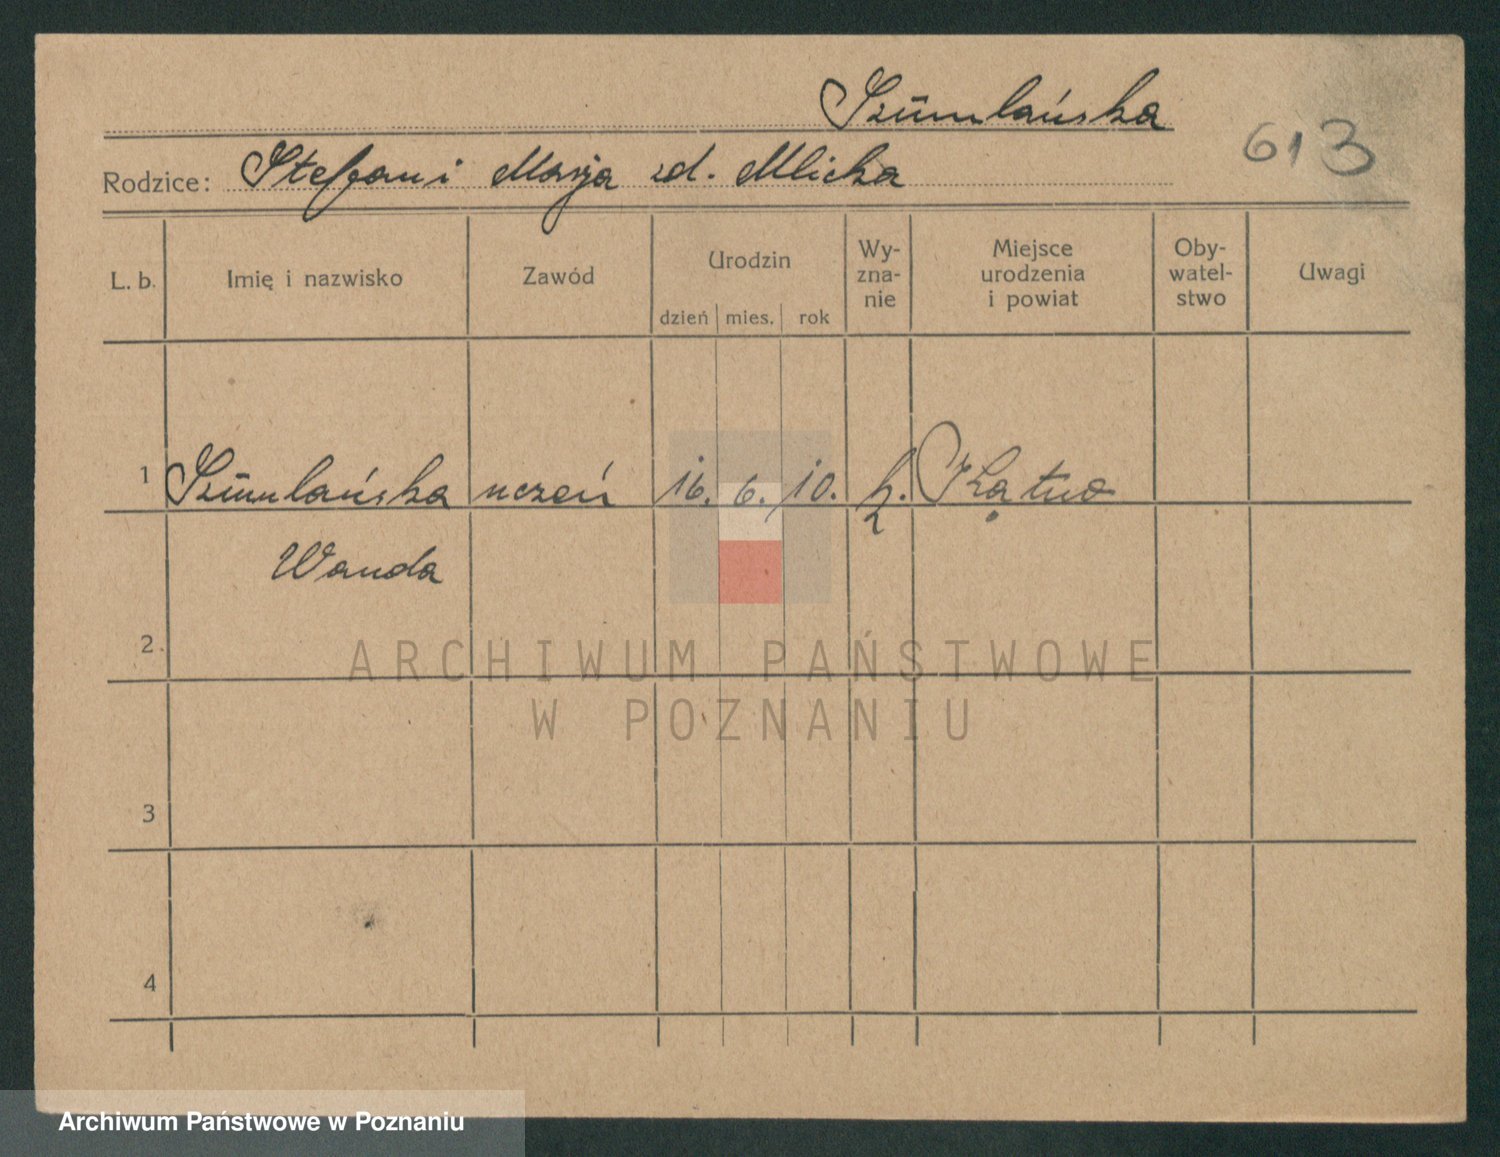 Szumlańska
613
Rodzice: Stefan i Marja zd. Mlicka
L. b. Imię i nazwisko Zawód Urodzin dzień mies. rok Wy-zna-nie Miejsce urodzenia i powiat Oby-watel-stwo Uwagi
1 Szumlańska uczeń 16. 6. 10. k.
Wanda
2
3
4
ARCHIWUM PAŃSTWOWE
W POZNANIU
Archiwum Państwowe w Poznaniu